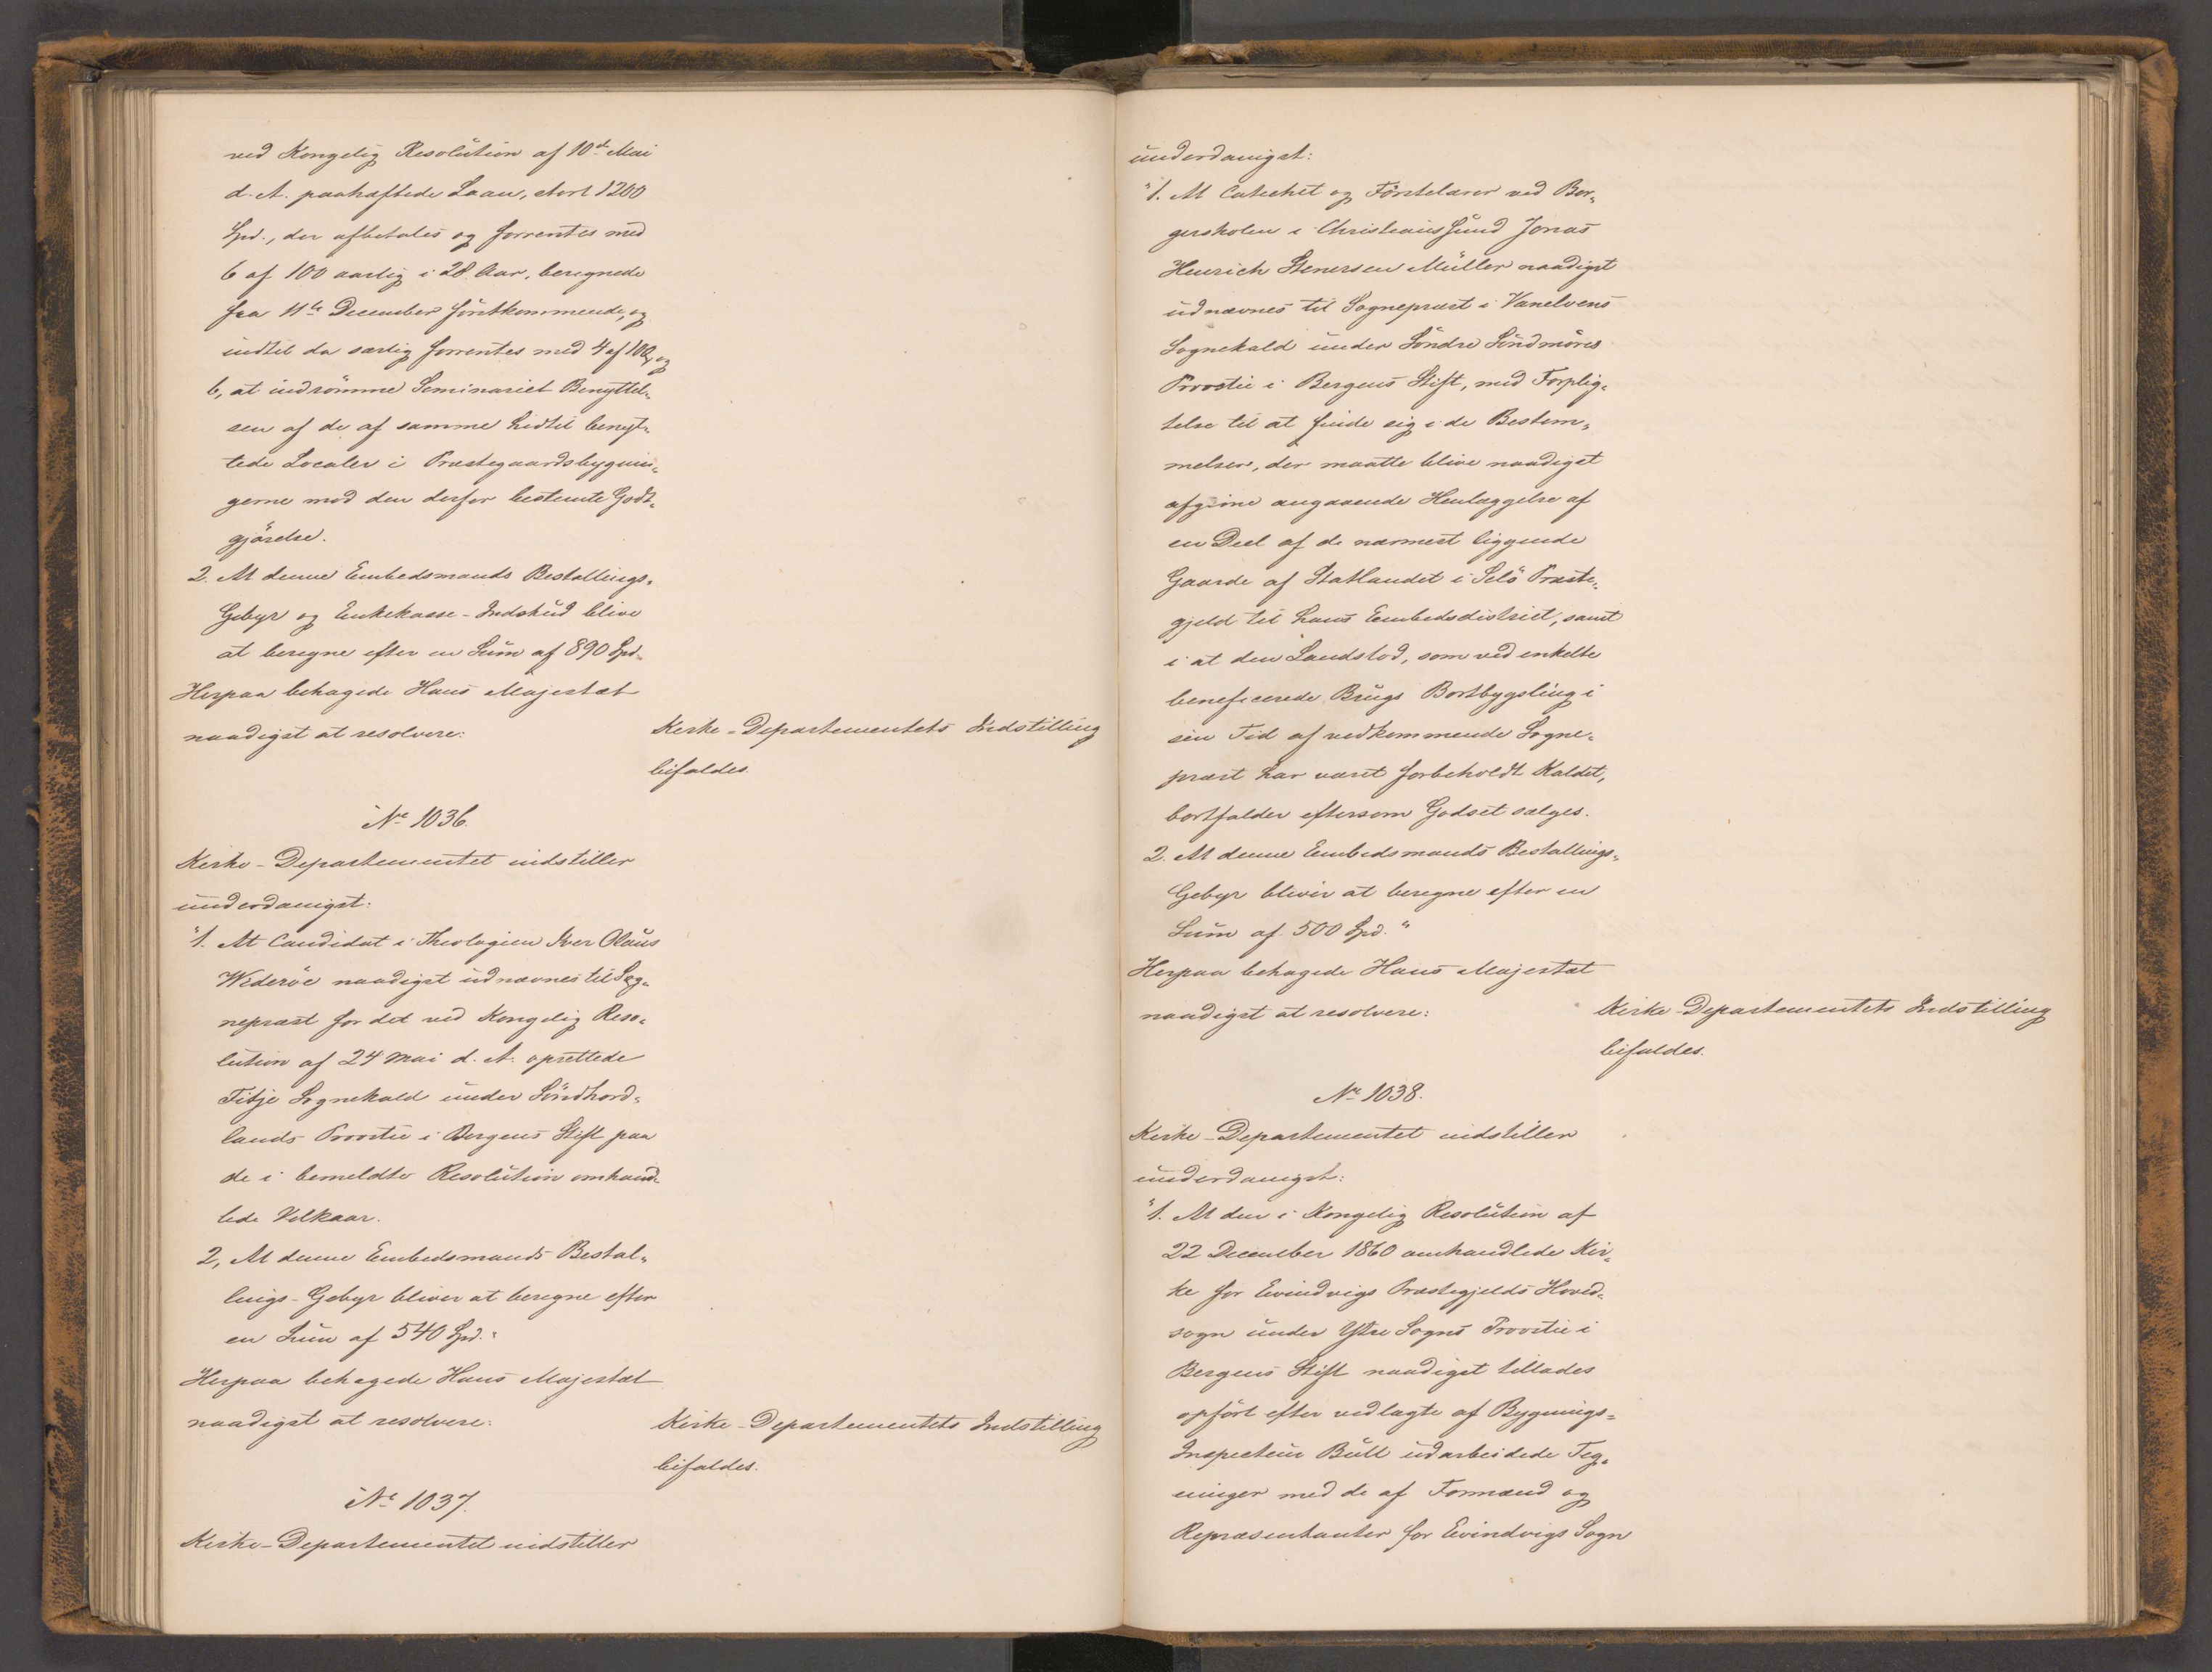 ved Kongelig Resolution af 10de Mai
d. A. paahæftede Laan, stort 1200
Spd., der afbetales og forrentes med
6 af 100 aarlig i 28 Aar, beregnede
fra 11te December førstkommende, og
indtil da særlig forrentes med 4 af 100, og
b, at indrømme Seminariet Benyttel-
sen af de af samme hidtil benyt-
tede Localer i Præstegaardsbygnin-
gerne mod den derfor bestemte Godt-
gjørelse.
2. At denne Embedsmands Bestallings-
Gebyr og Enkekasse-Indskud blive
at beregne efter en Sum af 890 Spd.
Herpaa behagede Hans Majestæt
naadigst at resolvere:
Kirke-Departementets Indstilling
bifaldes.
No 1036.
Kirke-Departementet indstiller
underdanigst:
"1. At Candidat i Theologien Iver Olaus
Wederöe naadigst udnævnes til Sog-
nepræst for det ved Kongelig Reso-
lution af 24 Mai d. A. oprettede
Fitje Sognekald under Søndhord-
lands Provstie i Bergens Stift paa
de i bemeldte Resolution omhand-
lede Vilkaar.
2, At denne Embedsmands Bestal-
lings-Gebyr bliver at beregne efter
en Sum af 540 Spd."
Herpaa behagede Hans Majestæt
naadigst at resolvere:
Kirke-Departementets Indstilling
bifaldes.
No 1037.
Kirke-Departementet indstiller
underdanigst:
"1. At Catechet og Førstelærer ved Bor-
gerskolen i Christianssund Jonas
Henrich Stenersen Müller naadigst
udnævnes til Sognepræst i Vanelvens
Sognekald under Söndre Söndmöres
Provstie i Bergens Stift, med Forplig-
telse til at finde sig i de Bestem-
melser, der maatte blive naadigst
afgivne angaaende Henlæggelse af
en Deel af de nærmest liggende
Gaarde af Statlandet i Selö Præste-
gjeld til hans Embedsdistrict, samt
i at den Landslod, som ved enkelte
beneficerede Brugs Bortbygsling i
sin Tid af vedkommende Sogne-
præst har været forbeholdt Kaldet,
bortfalder eftersom Godset sælges.
2. At denne Embedsmands Bestallings-
Gebyr bliver at beregne efter en
Sum af 500 Spd."
Herpaa behagede Hans Majestæt
naadigst at resolvere:
Kirke-Departementets Indstilling
bifaldes.
No 1038.
Kirke-Departementet indstiller
underdanigst:
"1. At den i Kongelig Resolution af
22 December 1860 omhandlede Kir-
ke for Evindvigs Præstegjelds Hoved-
sogn under Ytre Sogns Provstie i
Bergens Stift naadigst tillades
opført efter vedlagte af Bygnings-
Inspecteur Bull udarbeidede Teg-
ninger med de af Formænd og
Repræsentanter for Evindvigs Sogn